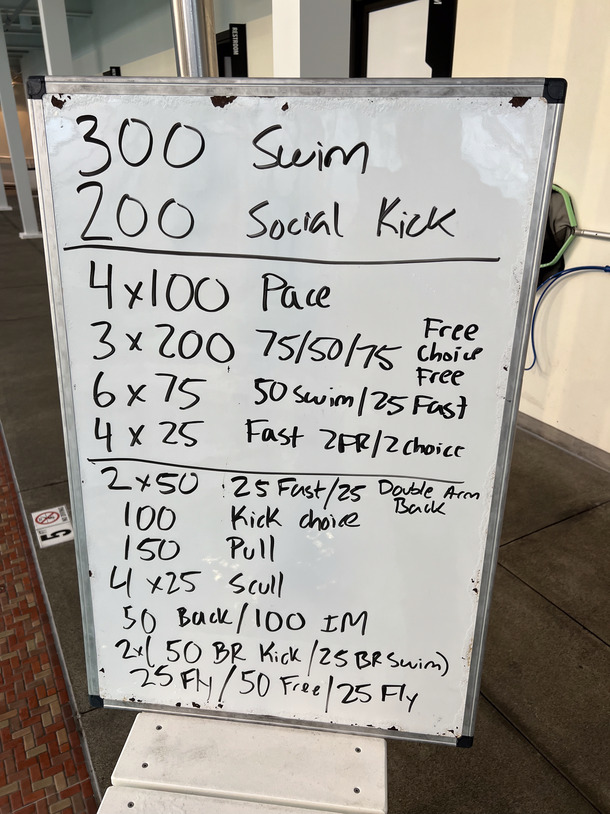 RESTROOM
300 Swim
200 Social Kick
4x100 Pace
3 x 200 75/50/75 Free choice Free
6 x 75 50 swim/25 Fast
4 x 25 Fast 2FR/2choice
2x50 25 Fast/25 Double Arm Back
100 Kick choice
150 Pull
4 x25 Scull
50 Back/100 IM
2x( 50 BR Kick/25 BR Swim)
25 Fly/50 Free/25 Fly
5